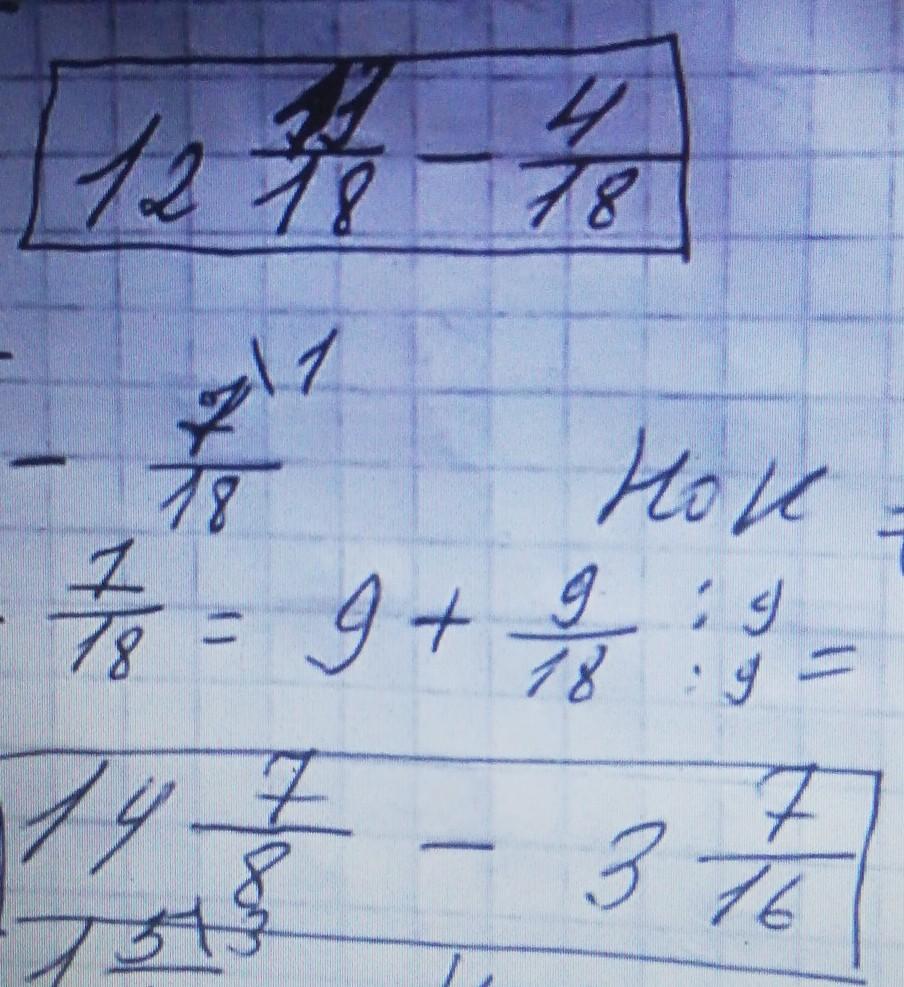 12 11/18 - 4/18
- 7\1/18 НОК =
7/18 = 9 + 9/18 :9/:9 =
14 7/8 - 3 7/16
1 5\3